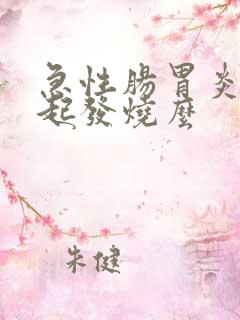 急性腸胃炎
起發燒麼
朱健